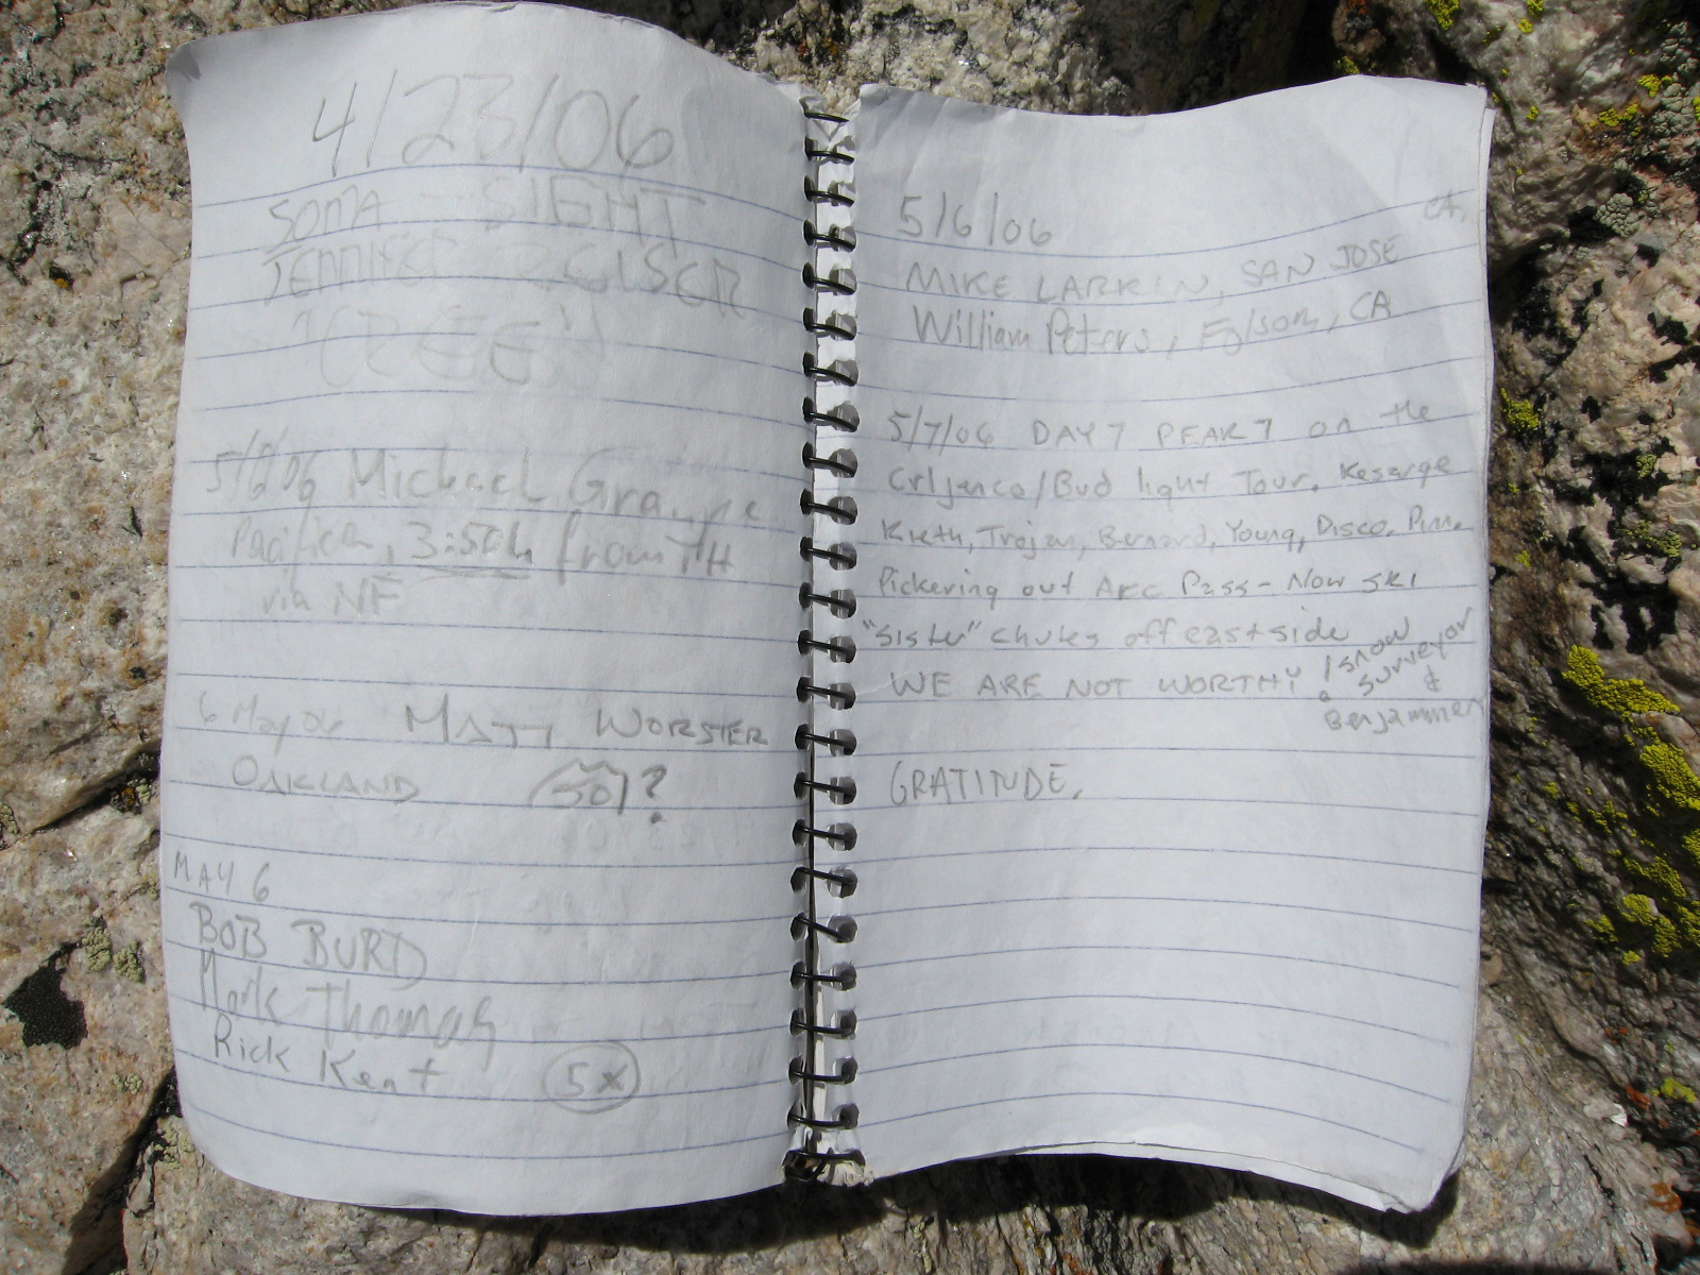 4/23/06
SOMA - SIGHT
JENNIFER
"REE"
5/6/06 Michael
Pacifica, 3:50h from TH
via NF
6 May 06 MATT WORSTER
OAKLAND 50?
MAY 6
BOB BURD
Mark Thomas
Rick Kent 5x
5/6/06
MIKE LARKIN, SAN JOSE CA.
William Peters, Folsom, CA
5/7/06 DAY 7 PEAK 7 on the
/Bud light Tour. Kesarge
Kieth, Trojan, Bernard, Young, Disco.
Pickering out Arc Pass - Now ski
"Sister" chutes off eastside
WE ARE NOT WORTHY! snow
surveyor
&
Benjammen
GRATITUDE.